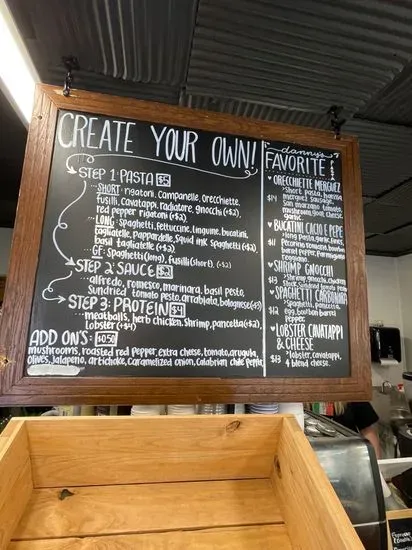 CREATE YOUR OWN!
STEP 1: PASTA $5
SHORT: rigatoni, campanelle, orecchiette,
fusilli, cavatappi, radiatore, gnocchi (+$2),
red pepper rigatoni (+$2)
LONG: spaghetti, fettuccine, linguine, bucatini,
tagliatelle, pappardelle, squid ink spaghetti (+$2)
basil tagliatelle (+$2)
GF: spaghetti (long), fusilli (short), (+$2)
STEP 2: SAUCE $3
alfredo, romesco, marinara, basil pesto,
sundried tomato pesto, arrabiata, bolognese
STEP 3: PROTEIN $4
meatballs, herb chicken, shrimp, pancetta (+$2),
lobster (+$4)
ADD ON'S:
mushrooms, roasted red pepper, extra cheese, tomato, arugula,
olives, jalapeno, artichoke, caramelized onion, calabrian chile pepper
danny's
FAVORITE
ORECCHIETTE MERGUEZ
short pasta, harissa
$14 merguez sausage,
san marzano tomato
mushroom, goat cheese,
BUCATINI CACIO E PEPE
long pasta, garlic, EVOO,
$11 pecorino romano, bourbon
barrel pepper, parmigiano
reggiano
SHRIMP GNOCCHI
shrimp, gnocchi, chicken
SPAGHETTI CARBONARA
spaghetti, pancetta,
$12 egg, bourbon barrel
pepper
LOBSTER CAVATAPPI
& CHEESE
$13 lobster, cavatappi,
4 blend cheese.